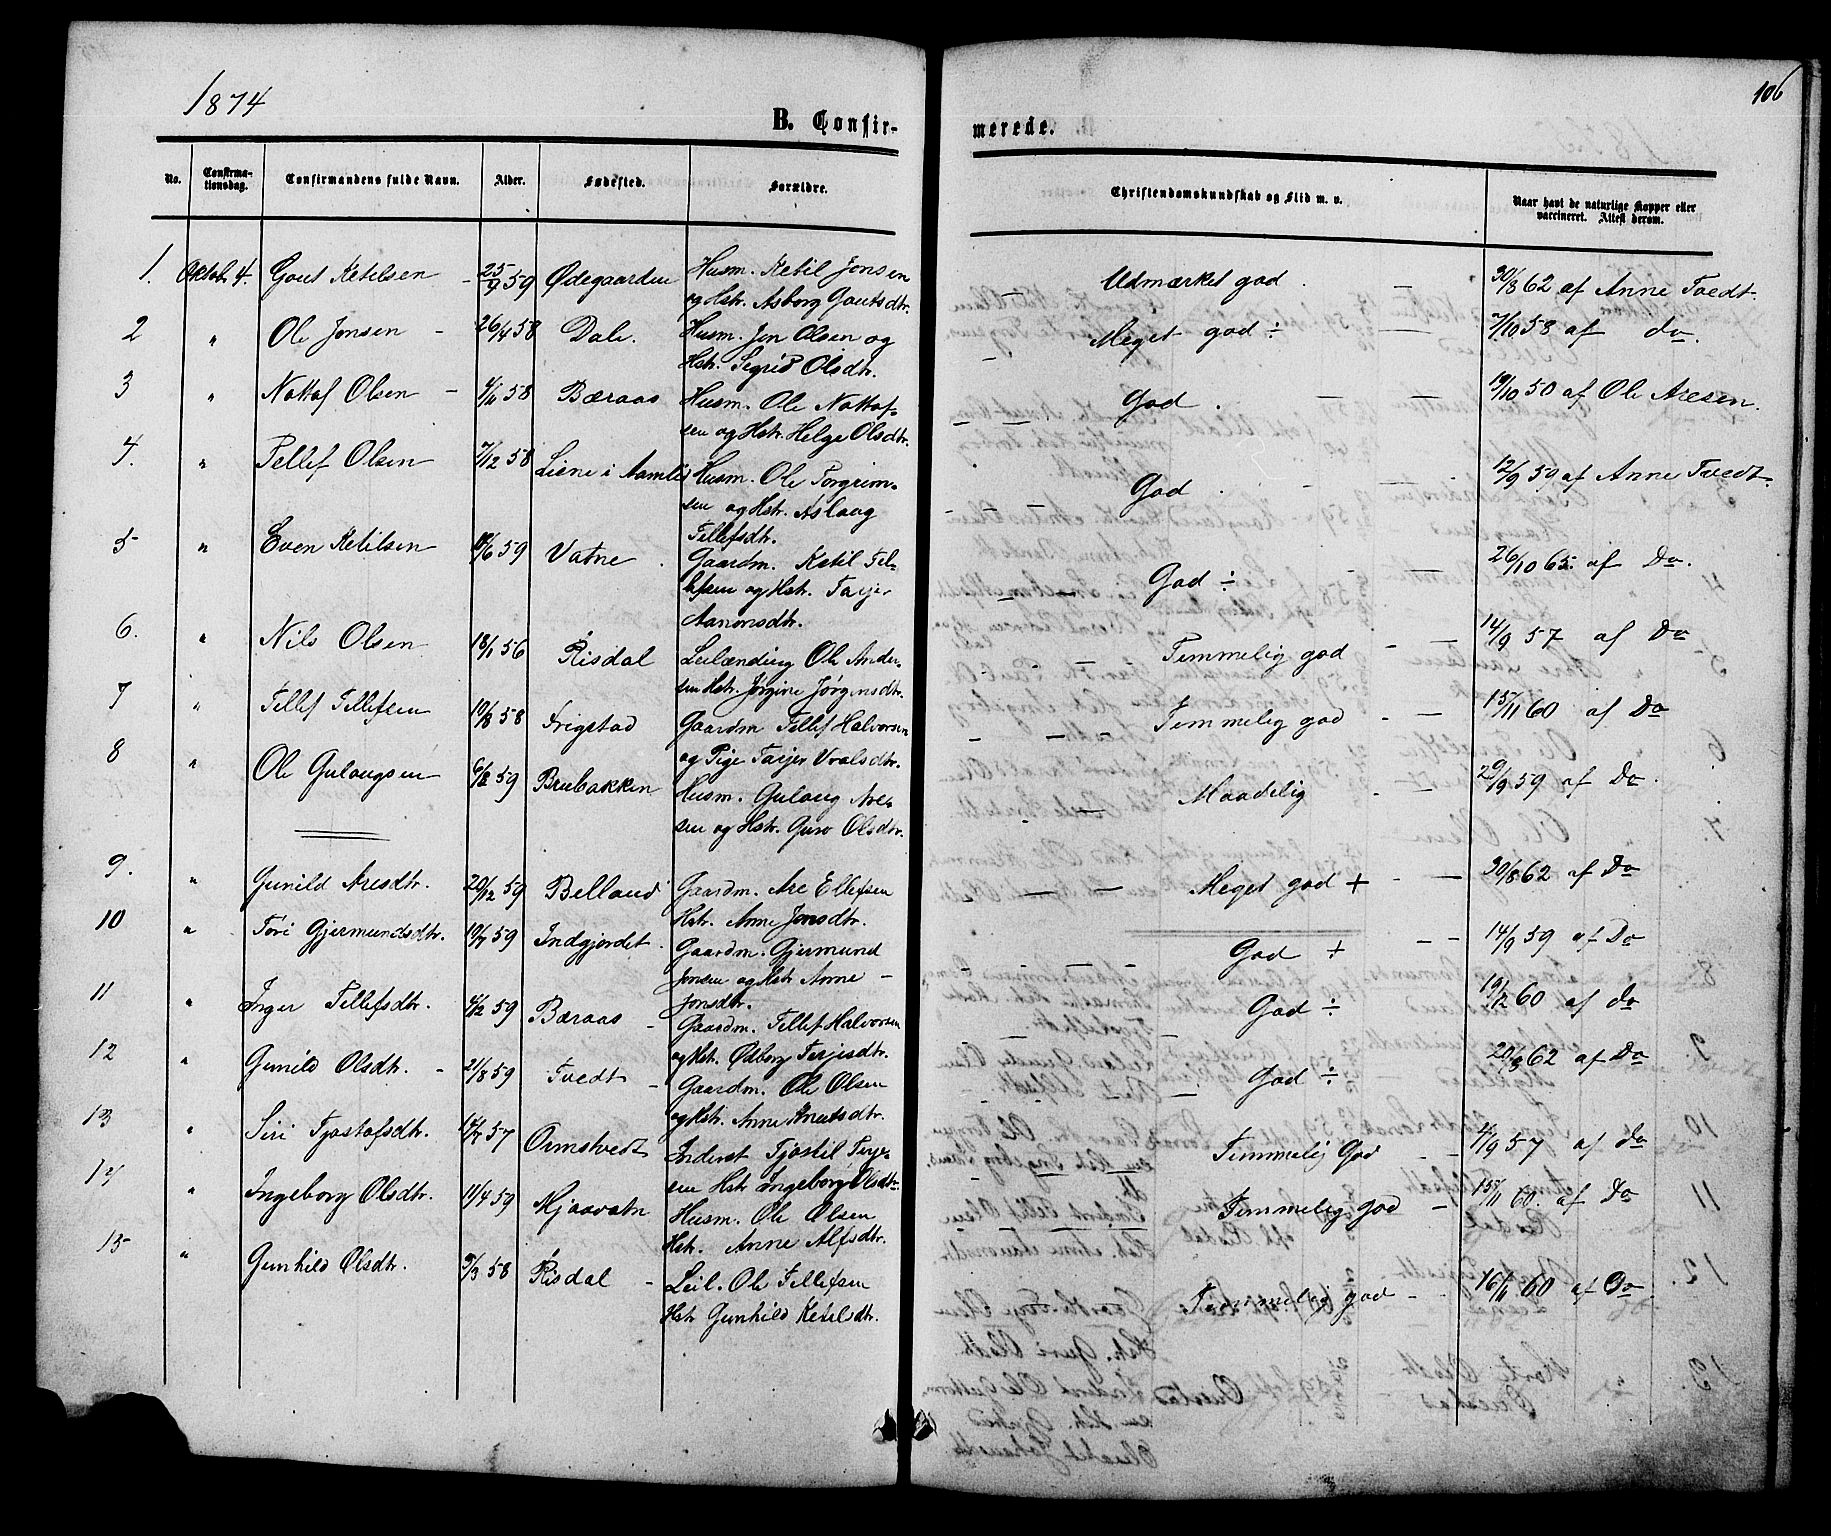 1874
106
B. Confir-
merede.
No. Confirma-tionsdag. Confirmandens fulde Navn. Alder. Fødested. Forældre. Christendomskundskab og Flid m. v. Naar havt de naturlige Kopper eller vaccineret. Attest derom.
1. Oktob. 4. Gout Ketilsen - 25/9 59 Ødegaarden Husm. Ketil Jonsen
og Hstr. Asborg Goutsdtr. — Udmærket god . — 30/8 62 af Anne Tvedt.
2 " Ole Jonsen - 26/4 58 Dale. Husm. Jon Olsen og
Hstr. Sigrid Olsdtr. - Meget god ÷ — 7/10 58 af do.
3 " Nottof Olsen - 4/11 58 Bæraas Husm. Ole Nottof-
sen og Hstr. Helge Olsdtr. — — God . — — 19/10 50 af Ole Aresen.
4. " Tellef Olsen 7/12 58 Liene i Aamlid Husm. Ole Torgrim-
sen og Hstr. Aslaug
Tellefsdtr. - — — God . - — - 12/9 59 af Anne Tvedt.
5 " Even Ketilsen 59 Vatne . Gaardm. Ketil Tel-
lefsen og Hstr. Taijer
Aanonsdtr. — — God ÷ - — 26/10 65. af Do.
6. " Nils Olsen 18/1 56 Risdal Leilænding Ole Ander-
sen Hstr. Jørgine Jørgensdtr. - — - Temmelig god - — 14/9 57 af Do
7 " Tellef Tellefsen 10/8 58 Frigstad Gaardm Tellef Halvorsen
og Pige Taijer Vralsdtr. — — — Temmelig god - — 15/11 60 af Do
8 " Ole Gulaugsen 59 Brubakken Husm. Gulaug Are-
sen og Hstr. Guro Olsdtr. - — Maadelig - — 29/9 59 af Do.
9. " Gunild Aresdtr. 20/12 59 Belland Gaardm. Are Ellefsen
Hstr. Anne Jonsdtr. - — — Meget god + - — 30/8 62 af Do
10 " Tori Gjermundsdtr. 10/7 59 Indgjordet. Gaardm. Gjermund
Jonsen og Hstr Anne -
Jonsdtr. - — — — God + — - 14/9 59 af Do
11 " Inger Tellefsdtr. 4/12 59 Bæraas - Gaardm. Tellef Halvorsen
og Hstr. Ødborg Terjesdtr. - — God ÷ - 19/12 60 af do
12 " Gunild Olsdtr. - 21/8 59 Tvedt - Gaardm. Ole Olsen
og Hstr. Anne Knutsdtr. - — — God ÷ 62 af Do
13 " Siri Tjostofsdtr. 14/7 57 Ormstvedt Inderst Tjostil Terje-
sen Hstr Ingeborg Olsdtr. — — Temmelig God - - 4/9 57 af do
14 " Ingeborg Olsdtr. 11/4 59 Mjaavatn Husm. Ole Olsen
Hstr. Anne Alfsdtr. - — — Temmelig god - 15/11 60 af Do
15 " Gunhild Olsdtr. 9/3 58 Risdal - Leil. Ole Tellefsen
Hstr Gunhild Ketilsdtr. — Temmelig god - - 16/11 60 af Do.